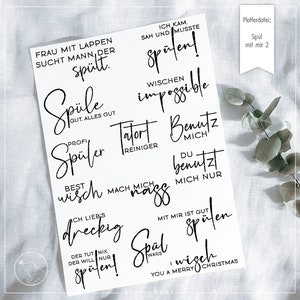 Plotterdatei:
Spül
mit mir 2
FRAU MIT LAPPEN
SUCHT MANN, DER
spült.
ICH KAM,
SAH UND MUSSTE
spülen!
WISCHEN
impossible
Spüle
GUT, ALLES GUT
PROFI
Spüler
Tatort
REINIGER
Benutz
MICH
DU
benutzt
MICH NUR
BEST
wisch
MACH MICH
nass
ICH LIEB'S
dreckig
MIT MIR IST GUT
spülen
DER TUT NIX.
DER WILL NUR
spülen!
Spül
WARS
I wisch
YOU A MERRY CHRISTMAS